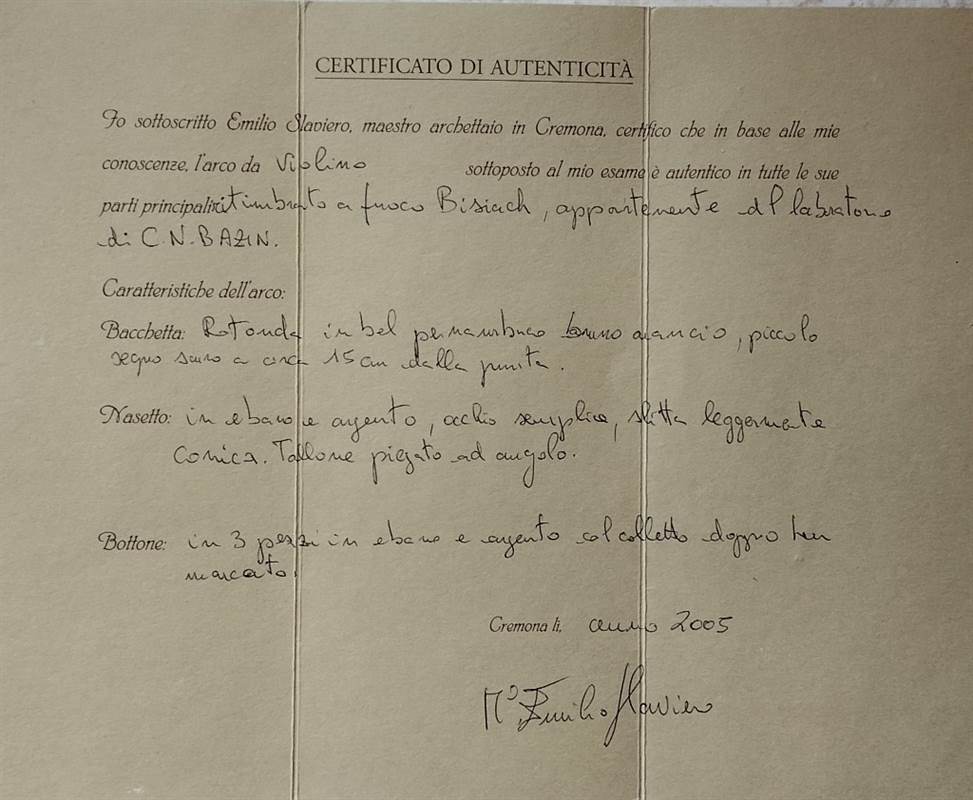 CERTIFICATO DI AUTENTICITÀ
Io sottoscritto Emilio Slaviero, maestro archettaio in Cremona, certifico che in base alle mie
conoscenze, l'arco da Violino sottoposto al mio esame è autentico in tutte le sue
parti principali timbrato a fuoco Bisiach, appartenente al laboratorio
di C.N. BAZIN.
Caratteristiche dell'arco:
Bacchetta: Rotonda in bel pernambuco bruno arancio, piccolo
segno scuro a circa 15 cm dalla punta.
Nasetto: in ebano e argento, occhio semplice, slitta leggermente
conica. Tallone piegato ad angolo.
Bottone: in 3 pezzi in ebano e argento col colletto doppio ben
marcato.
Cremona li, anno 2005
M° Emilio Slaviero